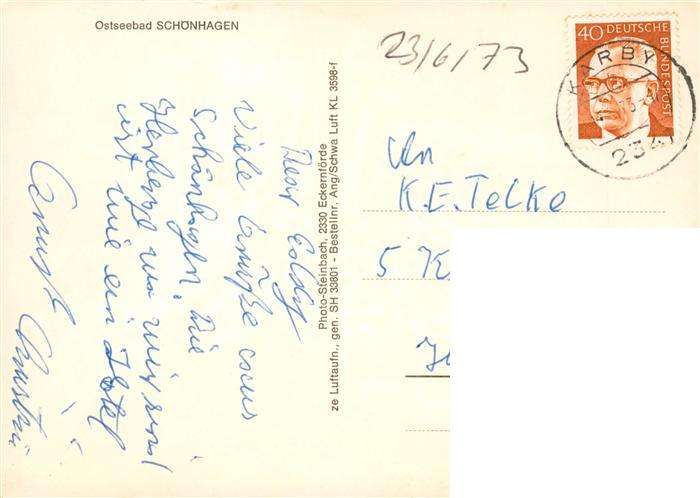 Ostseebad SCHÖNHAGEN
23/6/73
40 DEUTSCHE BUNDESPOST
KARBY
2341
Photo-Steinbach, 2330 Eckernförde
ze Luftaufn., gen. SH 33801 - Bestellnr. Ang/Schwa Luft KL 3598-f
Dear
Viele Grüße aus
Schönhagen. Die
Herberge wo wir sind
ist wie ein Hotel
An
K.E. Telke
5 K